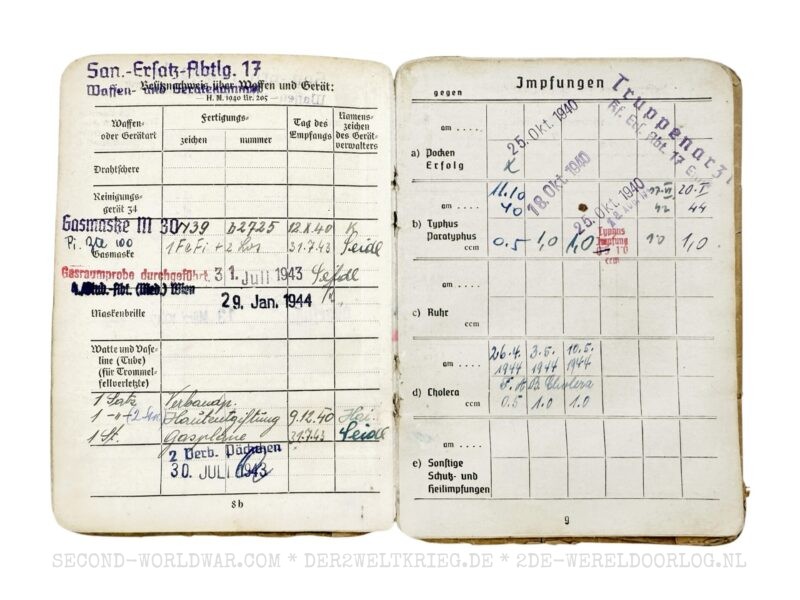 San.-Ersatz-Abtlg. 17
Besitznachweis über Waffen und Gerät:
Waffen- und Gerätenummer
H. M. 1940 Nr. 205
Waffen- oder Gerätart
Fertigungs-
zeichen
nummer
Tag des Empfangs
Namens-zeichen des Gerät-verwalters
Drahtschere
Reinigungs-
gerät 34
Gasmaske M 30
b2725
K
Gasmaske
31.7.43 Seidl
Gasraumprobe durchgeführt 31. Juli 1943 Seidl
29. Jan. 1944
Maskenbrille
Watte und Vase-
line (Tube)
(für Trommel-
fellverletzte)
1 Satz Verbandp.
Hautentgiftung 9.12.40
1 St. Gasplane 31.7.43 Seidl
2 Verb. Päckchen
30. JULI 1943
8b
Impfungen
gegen
Truppenarzt
am ....
25. Okt. 1940
a) Pocken
Erfolg
am ....
11.10
40
18. Okt. 1940
25. Okt. 1940
42
20. I
44
b) Typhus
Paratyphus
ccm
0.5
1,0
1,0
Typhus
Impfung
ccm
1.0
1,0
am ....
c) Ruhr
ccm
am ....
26.4.
1944
3.5.
1944
10.5.
1944
Cholera
d) Cholera
ccm
0.5
1.0
1.0
am ....
e) Sonstige
Schutz- und
Heilimpfungen
9
SECOND-WORLDWAR.COM * DER2WELTKRIEG.DE * 2DE-WERELDOORLOG.NL